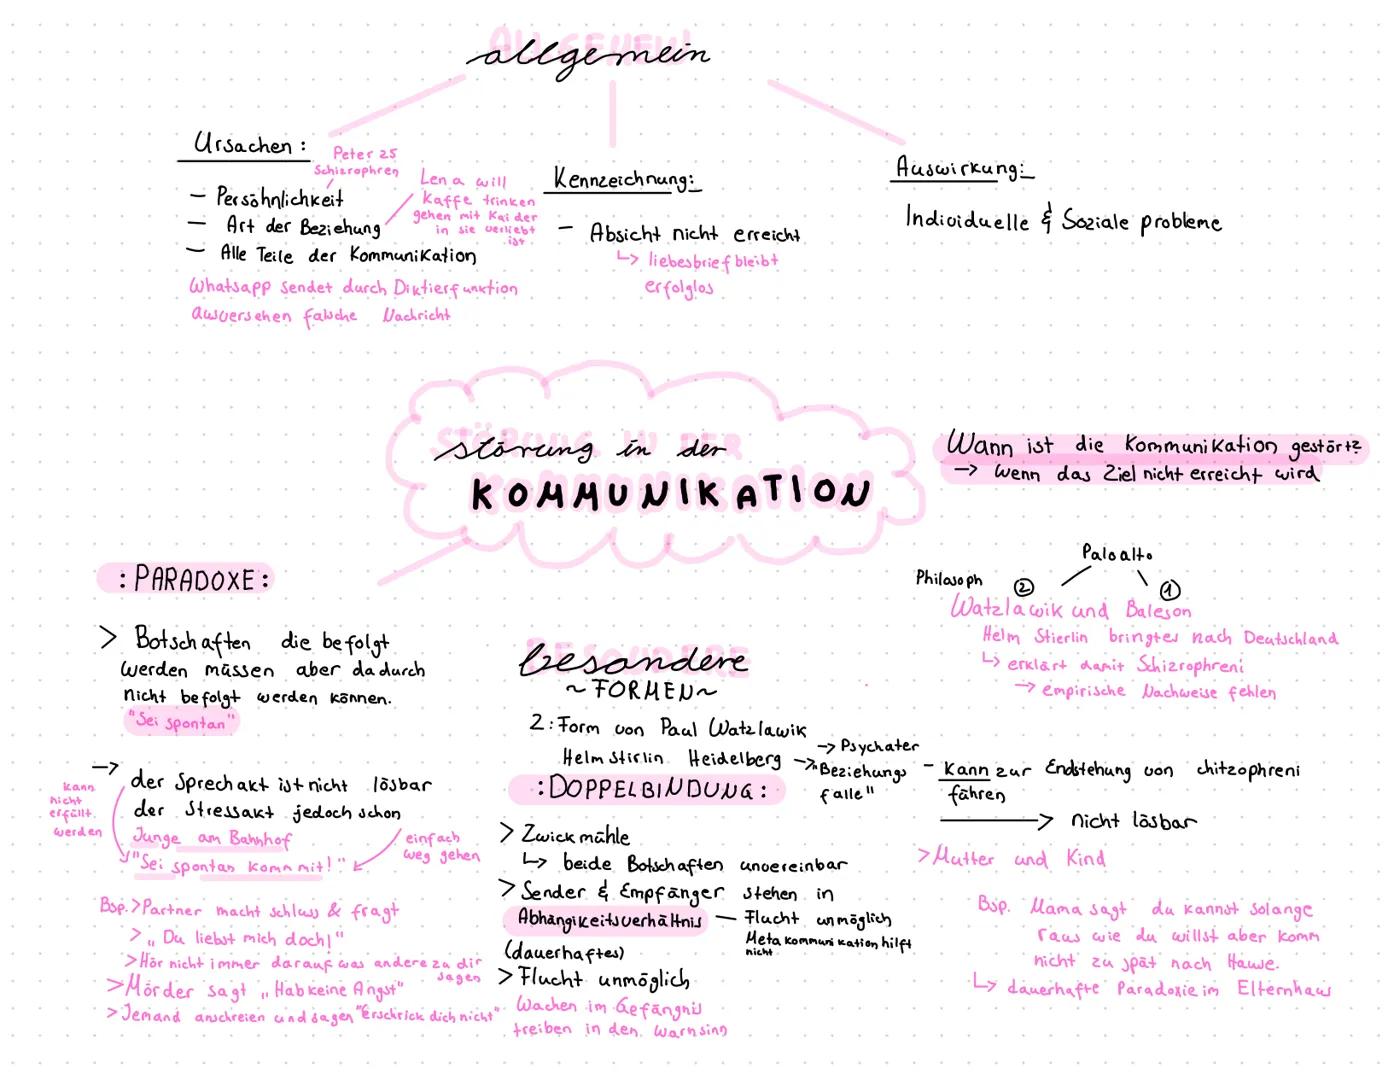 allgemein
Ursachen:
Peter 25
Schizrophren
- Persöhnlichkeit
- Art der Beziehung
- Alle Teile der Kommunikation
Lena will
Kaffe trinken
gehen mit Kai der
in sie verliebt
ist
Whatsapp sendet durch Diktierfunktion
ausversehen falsche Nachricht
Kennzeichnung:
- Absicht nicht erreicht
↳ liebesbrief bleibt
erfolglos
Auswirkung:
Individuelle & Soziale probleme
störung in der
KOMMUNIKATION
Wann ist die Kommunikation gestört?
→ wenn das Ziel nicht erreicht wird
:PARADOXE:
> Botschaften die befolgt
werden müssen aber dadurch
nicht befolgt werden können.
"Sei spontan"
→ der Sprechakt ist nicht lösbar
der Stressakt jedoch schon
kann
nicht
erfüllt
werden
Junge am Bahnhof
"Sei spontan komm mit!"
einfach
weg gehen
Bsp. >Partner macht schluss & fragt
> „Du liebst mich doch!"
>Hör nicht immer darauf was andere zu dir
sagen
>Mörder sagt „Hab keine Angst"
>Jemand anschreien und sagen "Erschrick dich nicht"
besondere
~FORMEN~
2: Form von Paul Watzlawik
Helm Stirlin Heidelberg
→ Psychater
→ "Beziehungs
falle"
:DOPPELBINDUNG:
> Zwickmühle
↳ beide Botschaften unvereinbar
> Sender & Empfänger stehen in
Abhängikeitsverhältnis — Flucht unmöglich
Metakommunikation hilft
nicht
(dauerhaftes)
> Flucht unmöglich
Wachen im Gefängnis
treiben in den Warnsinn
Paloalto
Philosoph ② ①
Watzlawik und Bateson
Helm Stierlin bringtes nach Deutschland
↳ erklärt damit Schizrophreni
→ empirische Nachweise fehlen
- Kann zur Endstehung von chitzophreni
führen
→ nicht lösbar
>Mutter und Kind
Bsp. Mama sagt du kannst solange
raus wie du willst aber komm
nicht zu spät nach Hause.
↳ dauerhafte Paradoxie im Elternhaus